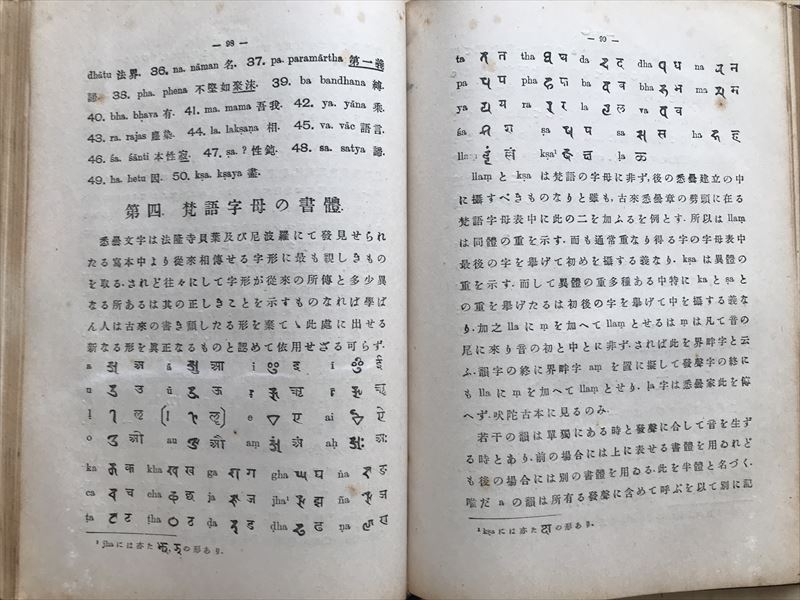 — 98 —
dhātu 法界. 36. na. nāman 名. 37. pa. paramārtha 第一義
諦. 38. pha. phena 不堅如聚沫. 39. ba bandhana 縛
40. bha. bhava 有. 41. ma. mama 吾我. 42. ya. yāna 乘.
43. ra. rajas 塵染. 44. la. lakṣaṇa 相. 45. va. vāc 語言.
46. śa. śānti 本性寂. 47. ṣa. ? 性鈍. 48. sa. satya 諦.
49. ha. hetu 因. 50. kṣa. kṣaya 盡.
第四. 梵語字母の書體.
悉曇文字は法隆寺貝葉及び尼波羅にて發見せられ
たる寫本中より從來相傳せる字形に最も親しきもの
を取る. されど往々にして字形が從來の所傳と多少異
なる所あるは其の正しきことを示すものなれば學ば
ん人は古來の書き頽したる形を棄てゝ此處に出せる
新なる形を異正なるものと認めて依用せざる可らず.
a अ ā आ i ī
u उ ū ऊ ṛ ऋ ṝ ॠ
ḷ ऌ (ḹ ॡ) e ए ai ऐ
o ओ au औ aṃ अं aḥ अः
ka क kha ख ga ग gha घ ṅa ङ
ca च cha छ ja ज jha¹ झ ña ञ
ṭa ट ṭha ठ ḍa ड ḍha ढ ṇa ण
¹ jha には亦た の形あり.
— 99 —
ta त tha थ da द dha ध na न
pa प pha फ ba ब bha भ ma म
ya य ra र la ल va व
śa श ṣa ष sa स ha ह
llaṃ kṣa¹ क्ष ḷa ळ
llaṃ と kṣa は梵語の字母に非ず, 後の悉曇建立の中
に攝すべきものなりと雖も, 古來悉曇章の劈頭に在る
梵語字母表中に此の二を加ふるを例とす. 所以は llaṃ
は同體の重を示す. 而も通常重なり得る字の字母表中
最後の字を擧げて初めを攝する義なり. kṣa は異體の
重を示す. 而して異體の重多種ある中特に ka と ṣa と
の重を擧げたるは初後の字を擧げて中を攝する義な
り. 加之 lla に ṃ を加へて llaṃ とせるは ṃ は凡て音の
尾に來り音の初と中とに非ず. されば此を界畔字と云
ふ. 韻字の終に界畔字 aṃ を置に擬して發聲字の終に
も lla に ṃ を加へて llaṃ とせり. ḷa 字は悉曇家此を傳
へず. 吠陀古本に見るのみ.
若干の韻は單獨にある時と發聲に合して音を生ず
る時とあり. 前の場合には上に表せる書體を用ゐれど
も後の場合には別の書體を用ゐる. 此を半體と名づく.
唯だ a の韻は所有る發聲に含めて呼ぶを以て別に記
¹ kṣa には亦た の形あり.